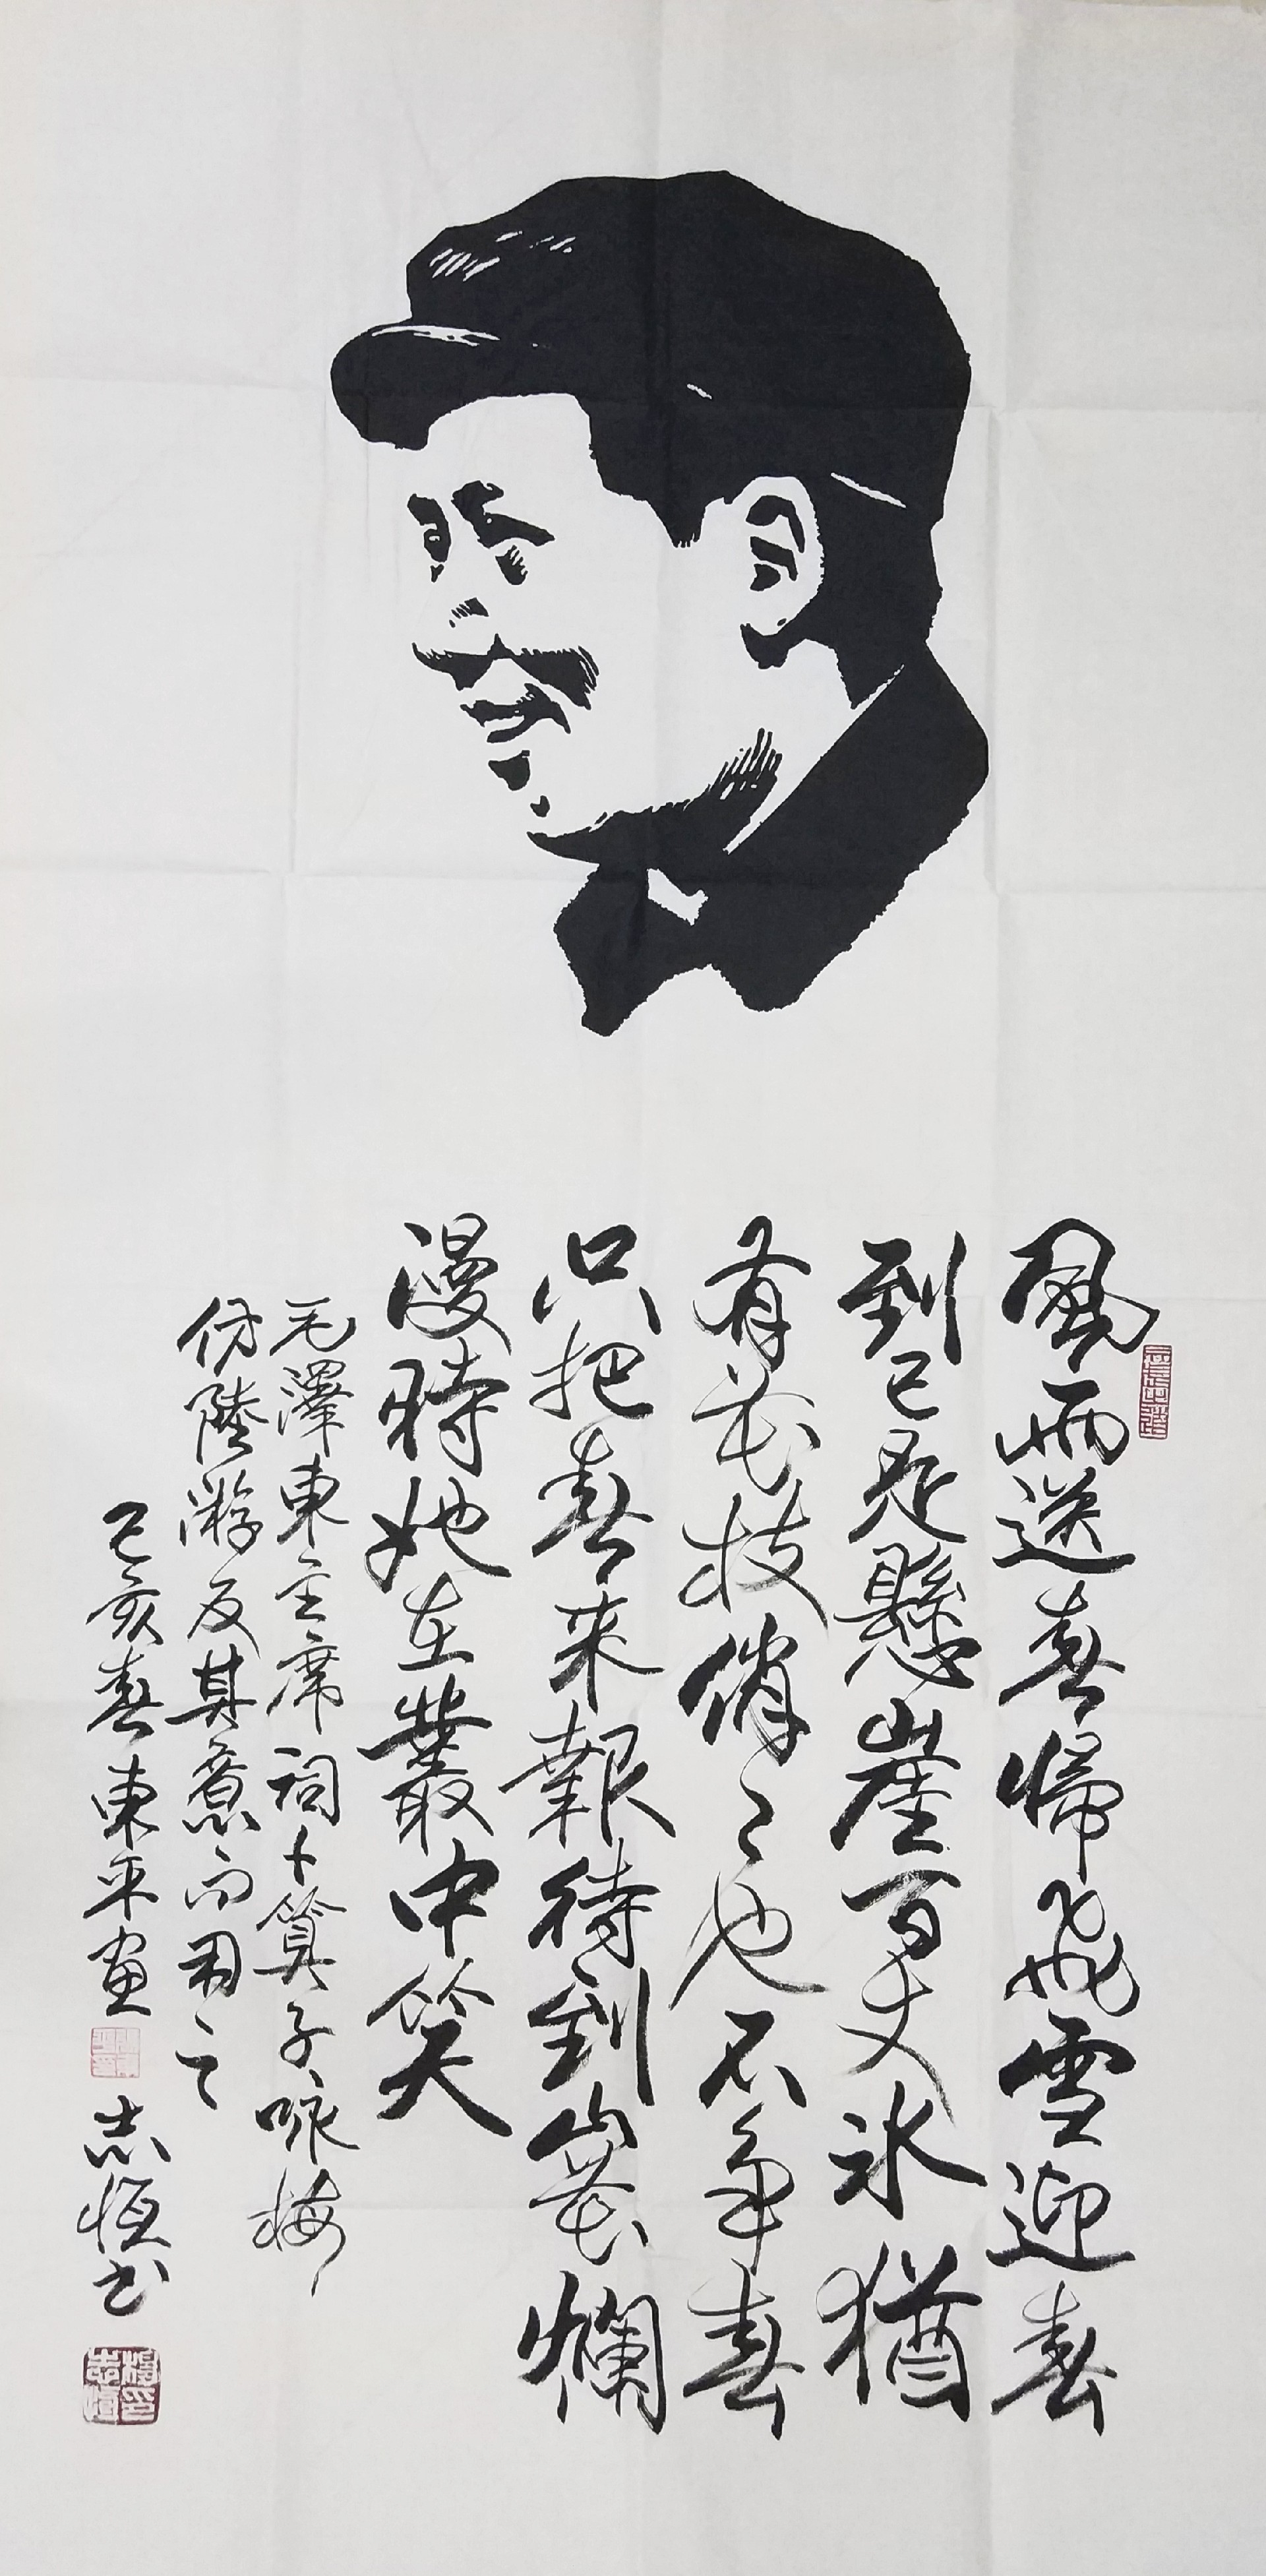 風雨送春帰飛雪迎春
到已是懸崖百丈冰猶
有花枝俏々也不争春
只把春来報待到山花爛
漫時她在叢中笑
毛澤東主席詞卜算子咏梅
仿陸游反其意而用之
己亥春東平画
志恒书
楊志恒印